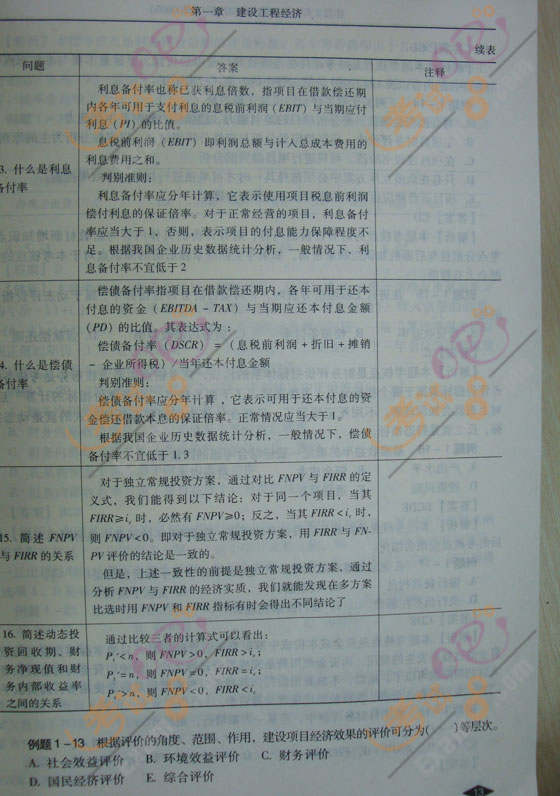 第一章 建设工程经济
续表
问题 答案 注释
3. 什么是利息
备付率
利息备付率也称已获利息倍数，指项目在借款偿还期
内各年可用于支付利息的息税前利润（EBIT）与当期应付
利息（PI）的比值。
息税前利润（EBIT）即利润总额与计入总成本费用的
利息费用之和。
判别准则：
利息备付率应分年计算，它表示使用项目税息前利润
偿付利息的保证倍率。对于正常经营的项目，利息备付
率应当大于1，否则，表示项目的付息能力保障程度不
足。根据我国企业历史数据统计分析，一般情况下，利
息备付率不宜低于2
4. 什么是偿债
备付率
偿债备付率指项目在借款偿还期内，各年可用于还本
付息的资金（EBITDA－TAX）与当期应还本付息金额
（PD）的比值。其表达式为：
偿债备付率（DSCR）＝（息税前利润＋折旧＋摊销
－企业所得税）/当年还本付息金额
判别准则：
偿债备付率应分年计算，它表示可用于还本付息的资
金偿还借款本息的保证倍率。正常情况应当大于1。
根据我国企业历史数据统计分析，一般情况下，偿债
备付率不宜低于1.3
15. 简述 FNPV
与 FIRR 的关系
对于独立常规投资方案，通过对比 FNPV 与 FIRR 的定
义式，我们能得到以下结论：对于同一个项目，当其
FIRR≥ic 时，必然有 FNPV≥0；反之，当其 FIRR<ic 时，
则 FNPV<0。即对于独立常规投资方案，用 FIRR 与 FN-
PV 评价的结论是一致的。
但是，上述一致性的前提是独立常规投资方案，通过
分析 FNPV 与 FIRR 的经济实质，我们就能发现在多方案
比选时用 FNPV 和 FIRR 指标有时会得出不同结论了
16. 简述动态投
资回收期、财
务净现值和财
务内部收益率
之间的关系
通过比较三者的计算式可以看出：
Pt′<n，则 FNPV>0，FIRR>ic；
Pt′=n，则 FNPV=0，FIRR=ic；
Pt′>n，则 FNPV<0，FIRR<ic
例题1－13 根据评价的角度、范围、作用，建设项目经济效果的评价可分为( )等层次。
A. 社会效益评价 B. 环境效益评价 C. 财务评价
D. 国民经济评价 E. 综合评价
13